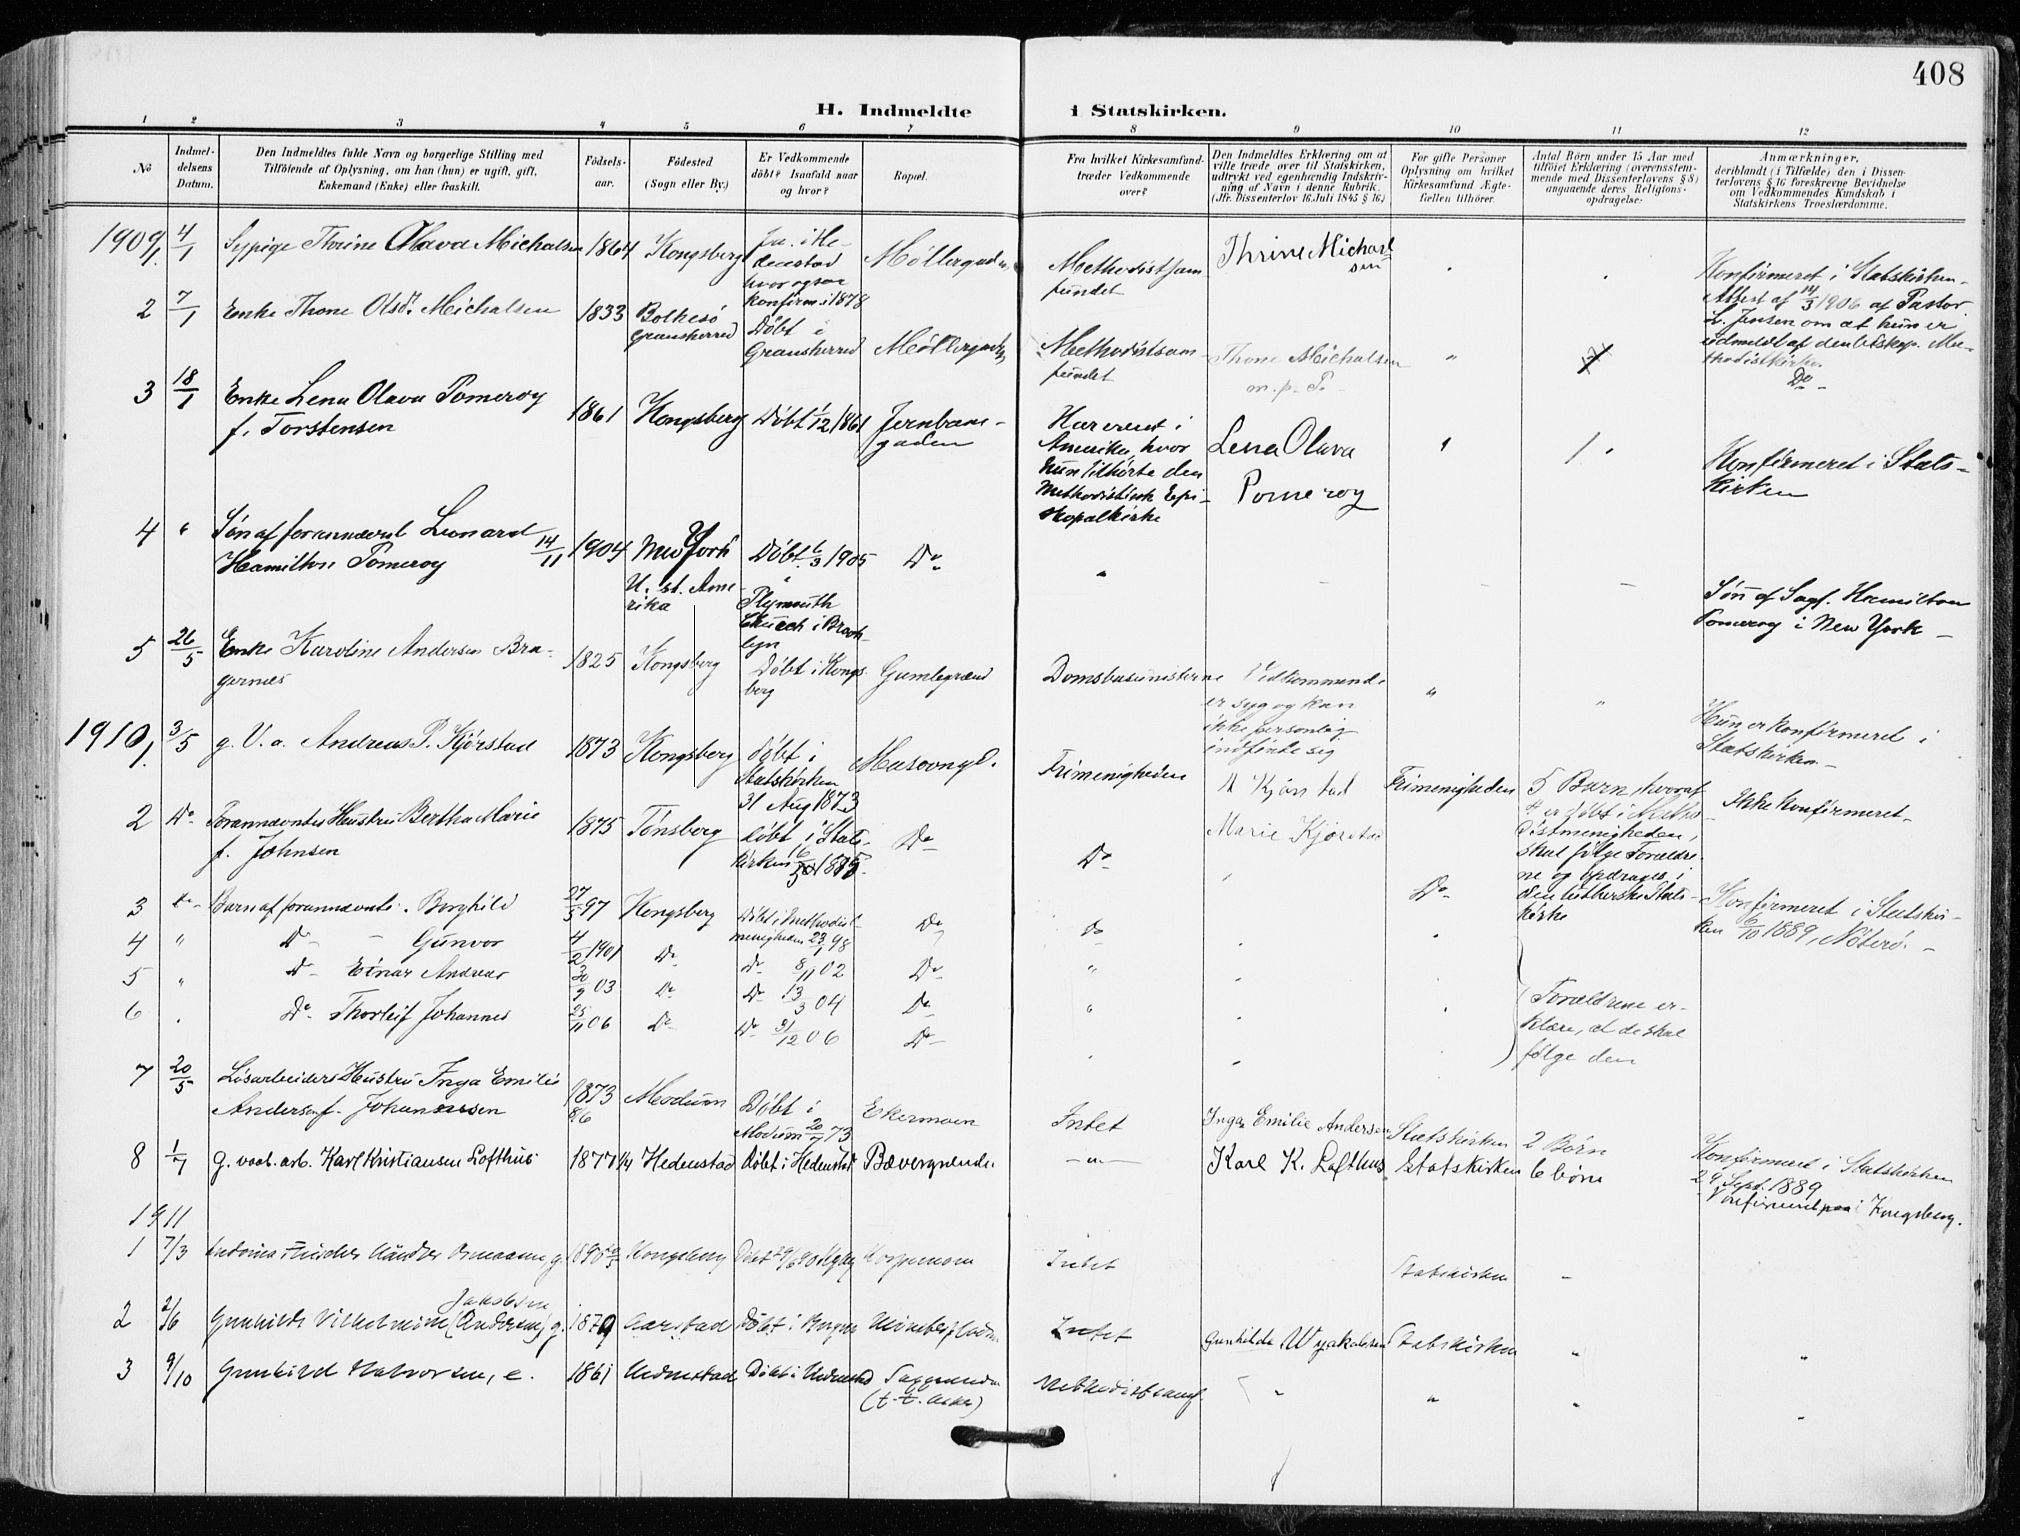 408
H. Indmeldte i Statskirken.
1 2 3 4 5 6 7 8 9 10 11 12
No
Indmel-
delsens
Datum.
Den Indmeldtes fulde Navn og borgerlige Stilling med
Tilföiende af Oplysning, om han (hun) er ugift, gift,
Enkemand (Enke) eller fraskilt.
Födsels-
aar.
Födested
(Sogn eller By.)
Er Vedkommende
döbt? Isaafald naar
og hvor?
Bopæl.
Fra hvilket Kirkesamfund
træder Vedkommende
over?
Den Indmeldtes Erklæring om at
ville træde over til Statskirken,
udtrykt ved egenhændig Indskriv-
ning af Navn i denne Rubrik.
(Jfr. Dissenterlov 16 Juli 1845 § 16.)
For gifte Personer
Oplysning om hvilket
Kirkesamfund Ægte-
fællen tilhörer.
Antal Börn under 15 Aar med
tilföiet Erklæring (overensstem-
mende med Dissenterlovens § 8)
angaaende deres Religions-
opdragelse.
Anmærkninger,
deriblandt (i Tilfælde) den i Dissen-
terlovens § 16 foreskrevne Bevidnelse
om Vedkommendes Kundskab i
Statskirkens Troeslærdomme.
1909
1. 4/1 Sypige Thrine Olava Michalsen 1864 Kongsberg
Ja. i He-
denstad
hvor ogsaa
konfirm. i 1878
Møllergaden
Methodistsam
fundet
Thrine Michael
sen
Konfirmeret i Statskirken
Attest af 14/3 1906 af Pastor
L. Jensen om at hun er
udmeldt af den biskop. Me-
thodistkirke.
2 7/1 Enke Thone Olsdt. Michalsen 1833 Bolkesø
Gransherred
Døbt i
Gransherred
Møllergaden
Methodistsam
fundet
Thone Michalsen
m. p. P.
"
Do
3 18/1 Enke Lena Olava Pomeroy
f. Torstensen
1861 Kongsberg Døbt 1/12 1861 Jernbane-
gaden
Har været i
Amerika, hvor
hun tilhørte den
Methodistisk Epi-
skopalkirke
Lena Olava
Pomeroy
" 1
Konfirmeret i Stats-
kirken
4 " Søn af forannævnt Leonard
Hamilton Pomeroy
14/11 1904 New York
U. St. Ame-
rika
Døbt 6/3 1905
i
Plymouth
Church i Brook-
lyn
Do
"
Søn af Sagf. Hamilton
Pomeroy i New York
5 26/5 Enke Karoline Andersen Bra-
gernes
1825 Kongsberg Døbt i Kongs-
berg
Gamlegrænd
Vedkommende
er syg og kan
ikke personlig
indfinde sig
" "
Hun er konfirmeret i
Statskirken
1910
1. 3/5 g. V. a. Andreas P. Kjørstad 1873 Kongsberg
Døbt i
Statskirken
31 Aug 1873
Frimenigheden
A Kjørstad
Frimenigheden
5 Barn, hvoraf
4 er døbt i Metho-
distmenigheden,
skal følge Foreldre-
ne og opdrages i
den lutherske Stats-
kirke
Ikke konfirmeret
2 Do Forannævntes Hustru Bertha Marie
f. Johnsen
1875 Tønsberg
Døbt i Stats-
kirken 1875
Do
Do
Marie Kjørstad
Do
Konfirmeret i Statskir-
ken 6/10 1889, Nøterø.
3 Do Barn af forannævnte. Borghild 27/5 97 Kongsberg Døbt i Methodist
menigheden 23/1 98 Do Do
4 " Do Gunvor 4/2 1901 Do Do 8/11 02 Do "
5 " Do Einar Andreas 30/9 03 Do Do 13/3 04 Do "
6 . Do Thorleif Johannes 25/11 06 Do Do 31/12 06 Do
Foreldrene er-
klære, at de skal
følge den
7 20/5 Løsarbeiders Hustru Inga Emilie
Andersen f. Johannesen
1873
8/6
Modum
Døbt i
Modum 20/7 73
Ekermoen
Intet
Inga Emilie Andersen
Statskirken
2 Børn
Konfirmeret i Statskirken
29 Sept. 1889
8 1/7 g. vaab. arb. Karl Kristiansen Lofthus 1877 1/4 Hedenstad Døbt i Hedenstad Bævergrænden
-"-
Karl K. Lofthus
Statskirken
6 børn
Konfirmeret i Kongsberg.
1911
1 7/3 Kongsberg
Intet
Statskirken
-
2 2/6 Gunhilde Vilhelmine (Andersen) g.
Jakobsen
1879 Aarstad Døbt i Bergen
Intet
Gunhilde W Jakobsen
Statskirken
" "
3 9/10 Gunhild Halvorsen, e. 1861 Hedenstad Døbt i Hedenstad
(t. t. Asker)
Methodistsamf.
" " " "